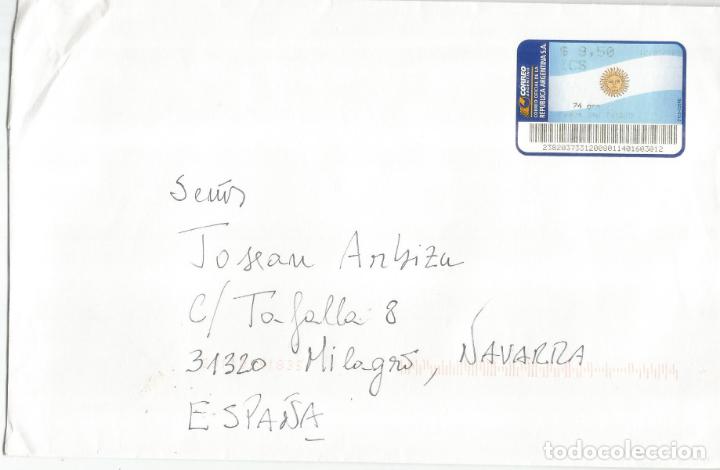 $ 9,50
CORREO
ARGENTINO
CORREO OFICIAL DE LA
REPUBLICA ARGENTINA S.A.
23820373312000011401603012
Señor
Josean Arbizu
C/ Tafalla 8
31320 Milagro, NAVARRA
ESPAÑA
todocoleccion